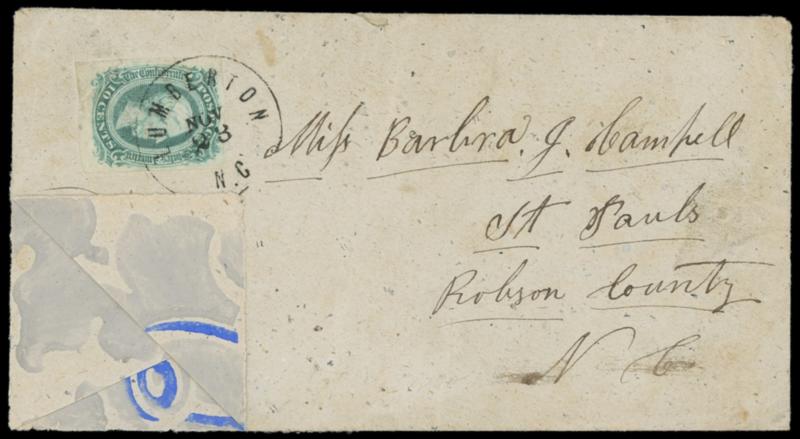 The Confederate
POSTAGE
10 CENTS
LUMBERTON
NOV
N.C
Miss Barbra. J. Campell
St Pauls
Robson County
N C